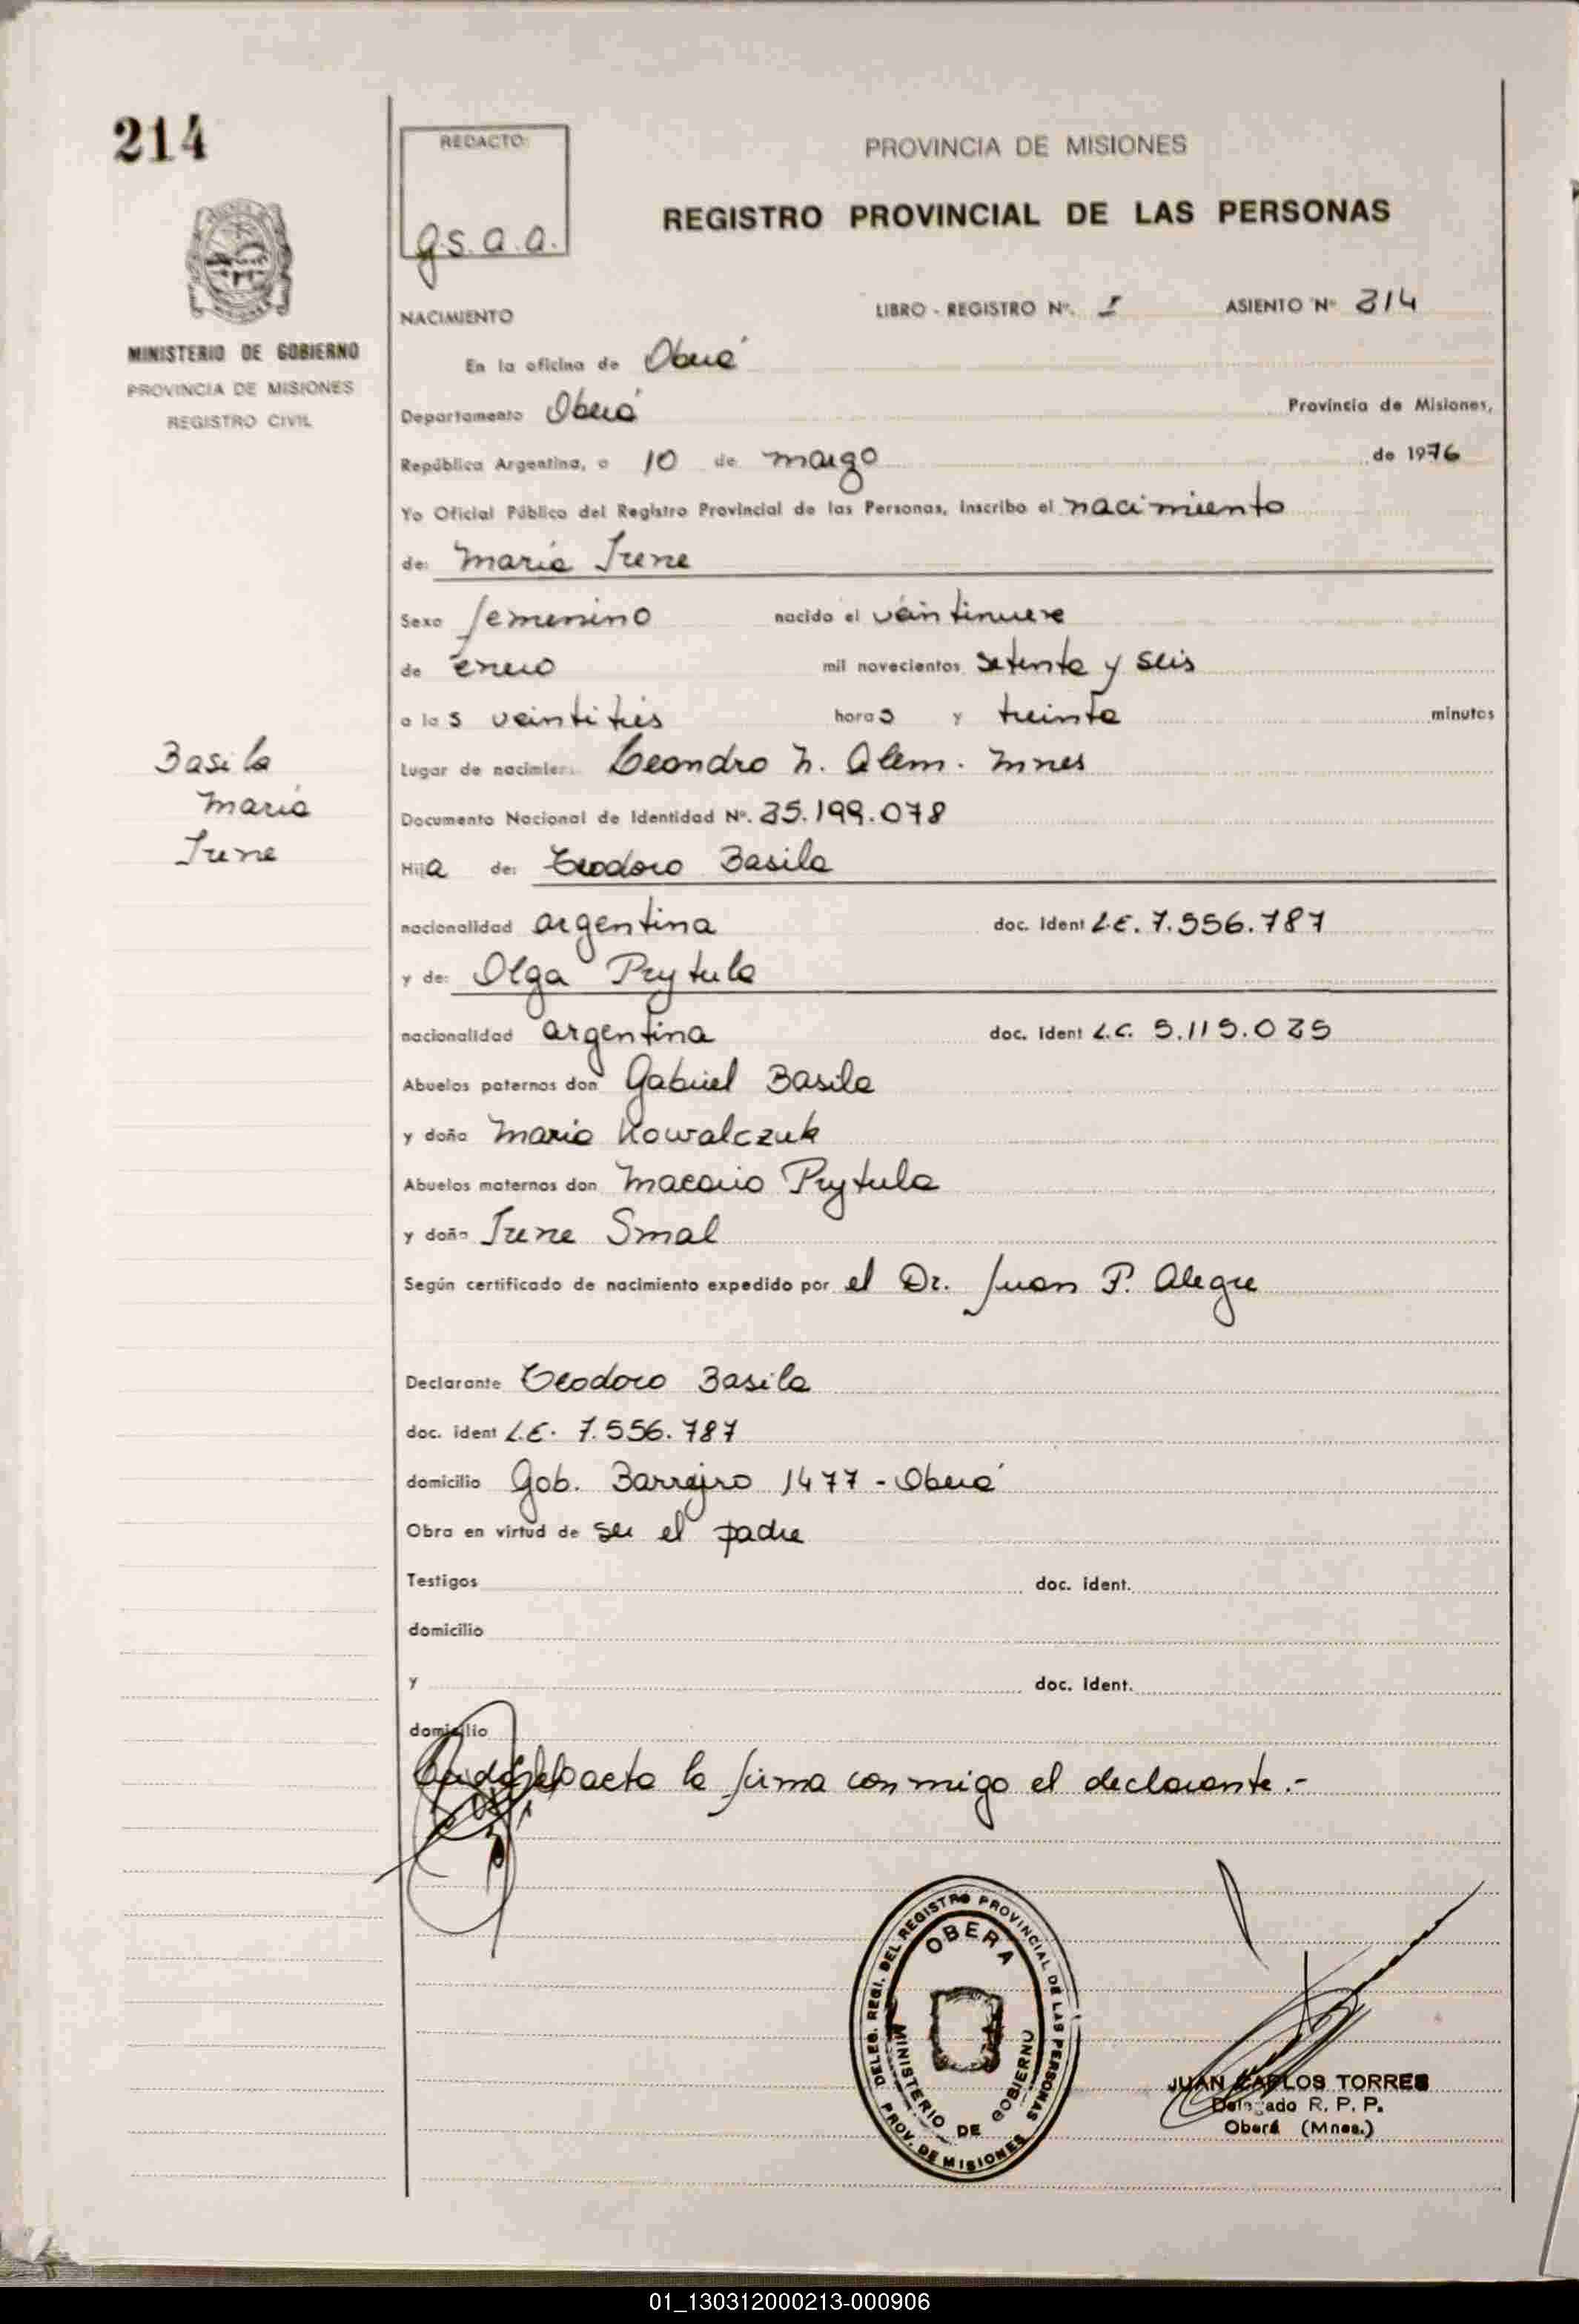 214
REDACTO:
g.s.a.a.
PROVINCIA DE MISIONES
REGISTRO PROVINCIAL DE LAS PERSONAS
MINISTERIO DE GOBIERNO
PROVINCIA DE MISIONES
REGISTRO CIVIL
NACIMIENTO LIBRO - REGISTRO Nº. I ASIENTO Nº 214
En la oficina de Oberá
Departamento Oberá Provincia de Misiones,
República Argentina, a 10 de marzo de 1976
Yo Oficial Público del Registro Provincial de las Personas, Inscribo el nacimiento
de: María Irene
Sexo femenino nacido el veintinueve
de enero mil novecientos setenta y seis
a las veintitrés horas y treinta minutos
Basila
María
Irene
Lugar de nacimien: Leandro N. Alem. Mnes
Documento Nacional de Identidad Nº. 25.199.078
Hija de: Teodoro Basila
nacionalidad argentina doc. Ident L.E. 7.556.787
y de: Olga Prytula
nacionalidad argentina doc. Ident L.C. 5.115.025
Abuelos paternos don Gabriel Basila
y doña María Kowalczuk
Abuelos maternos don Macario Prytula
y doña Irene Smal
Según certificado de nacimiento expedido por el Dr. Juan P. Alegre
Declarante Teodoro Basila
doc. ident L.E. 7.556.787
domicilio Gob. Barreyro 1477 - Oberá
Obra en virtud de ser el padre
Testigos doc. ident.
domicilio
y doc. ident.
domicilio
acta la firma conmigo el declarante.-
DELEG. REGI. DEL REGISTRO PROVINCIAL DE LAS PERSONAS
OBERA
MINISTERIO DE GOBIERNO
PROV. DE MISIONES
JUAN CARLOS TORRES
Delegado R. P. P.
Oberá (Mnes.)
01_130312000213-000906